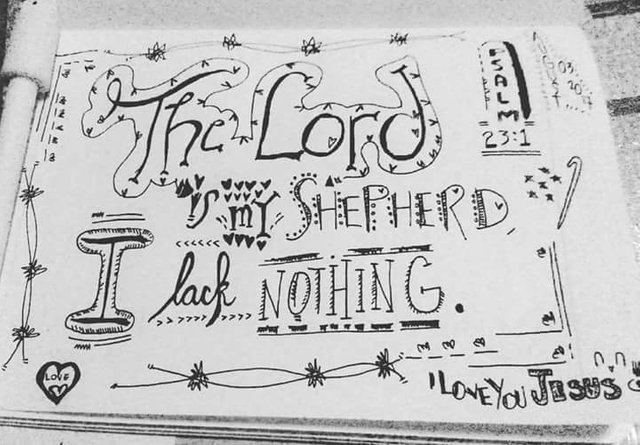 The Lord
is my SHEPHERD,
I lack NOTHING.
PSALM
23:1
LOVE
I LOVE YOU JESUS